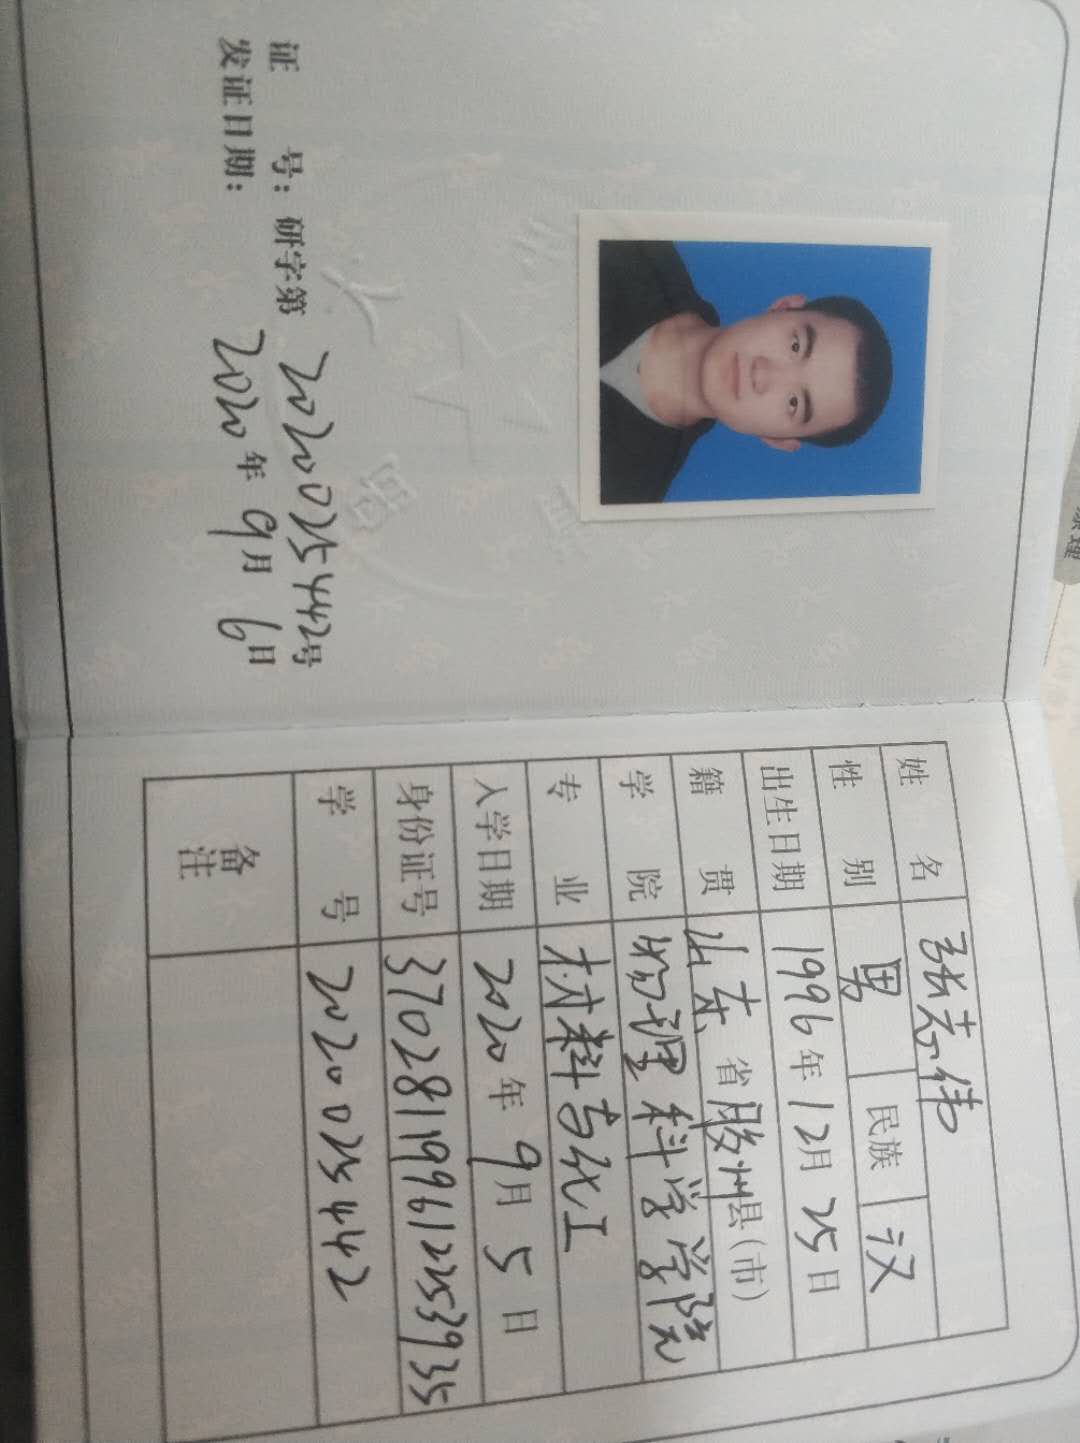 证 号：研字第 2020025442号
发证日期： 2020年 9月 6日
姓 名 张志伟
性 别 男 民族 汉
出生日期 1996年12月25日
籍 贯 山东 省 胶州 县(市)
学 院 物理科学学院
专 业 材料与化工
入学日期 2020年 9月 5日
身份证号 370281199612253935
学 号 2020025442
备注